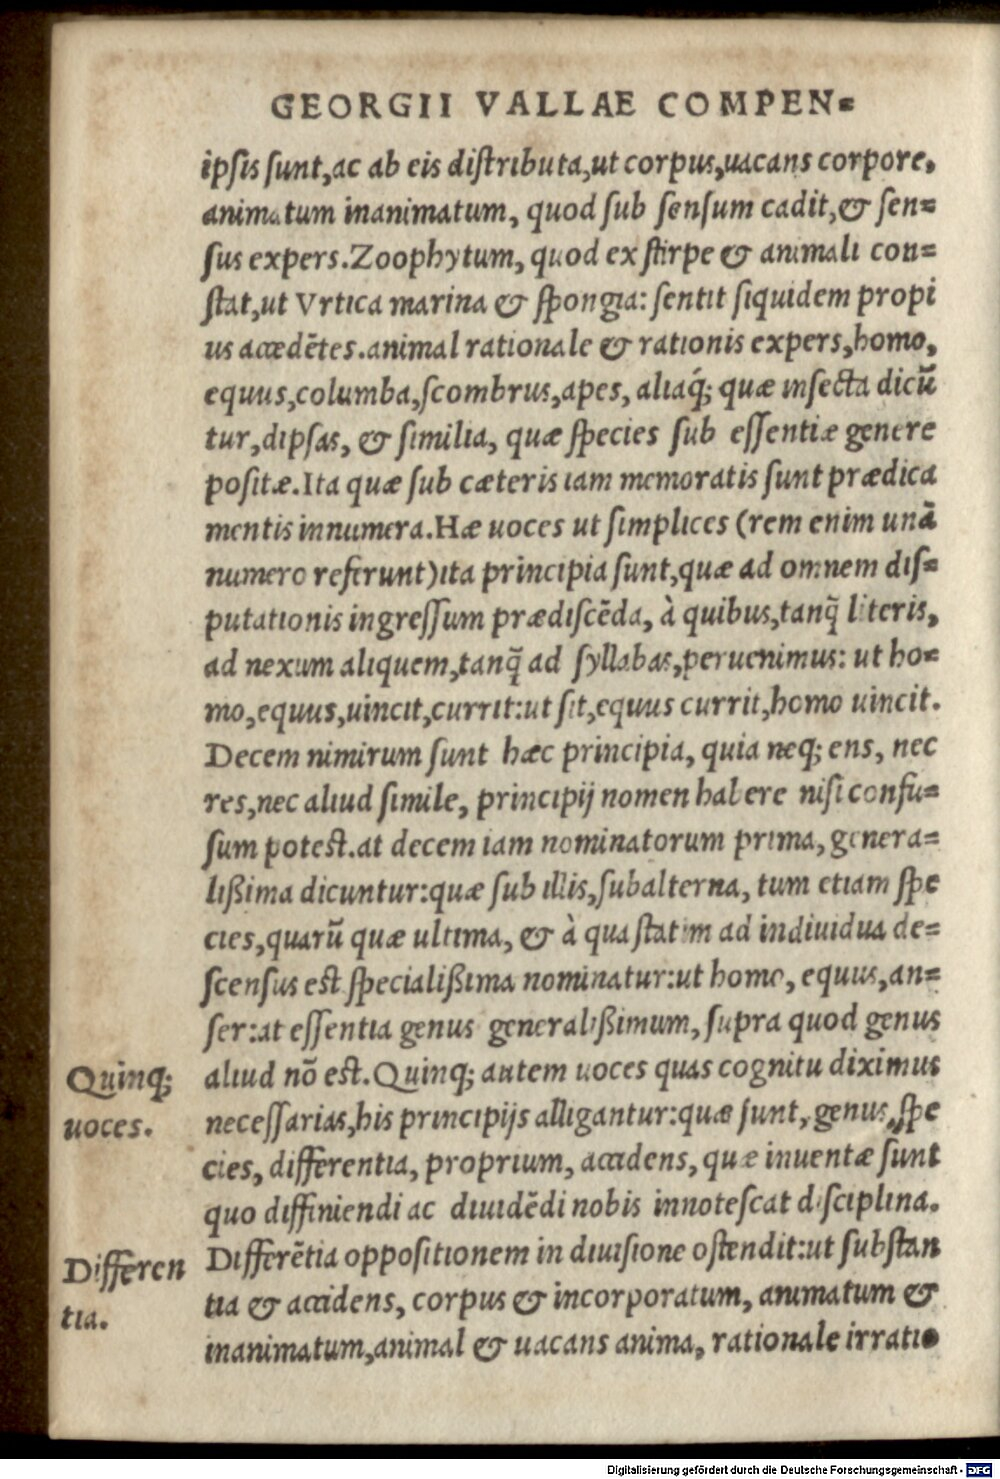 GEORGII VALLAE COMPEN=
ipsis sunt, ac ab eis distributa, ut corpus, uacans corpore,
animatum inanimatum, quod sub sensum cadit, & sen=
sus expers. Zoophytum, quod ex stirpe & animali con=
stat, ut Vrtica marina & spongia: sentit siquidem propi
us accedẽtes. animal rationale & rationis expers, homo,
equus, columba, scombrus, apes, aliaq́; quæ insecta dicũ
tur, dipsas, & similia, quæ species sub essentiæ genere
positæ. Ita quæ sub cæteris iam memoratis sunt prædica
mentis innumera. Hæ uoces ut simplices (rem enim unã
numero referunt) ita principia sunt, quæ ad omnem dis=
putationis ingressum prædiscẽda, à quibus, tanq̃ literis,
ad nexum aliquem, tanq̃ ad syllabas, peruenimus: ut ho=
mo, equus, uincit, currit: ut sit, equus currit, homo uincit.
Decem nimirum sunt hæc principia, quia neq; ens, nec
res, nec aliud simile, principij nomen habere nisi confu=
sum potest. at decem iam nominatorum prima, genera=
lißima dicuntur: quæ sub illis, subalterna, tum etiam spe
cies, quarũ quæ ultima, & à qua statim ad indiuidua de=
scensus est specialißima nominatur: ut homo, equus, an=
ser: at essentia genus generalißimum, supra quod genus
Quinq; uoces.
aliud nõ est. Quinq; autem uoces quas cognitu diximus
necessarias, his principijs alligantur: quæ sunt, genus, spe
cies, differentia, proprium, accidens, quæ inuentæ sunt
quo diffiniendi ac diuidẽdi nobis innotescat disciplina.
Differen
tia.
Differẽtia oppositionem in diuisione ostendit: ut substan
tia & accidens, corpus & incorporatum, animatum &
inanimatum, animal & uacans anima, rationale irratio
Digitalisierung gefördert durch die Deutsche Forschungsgemeinschaft - DFG